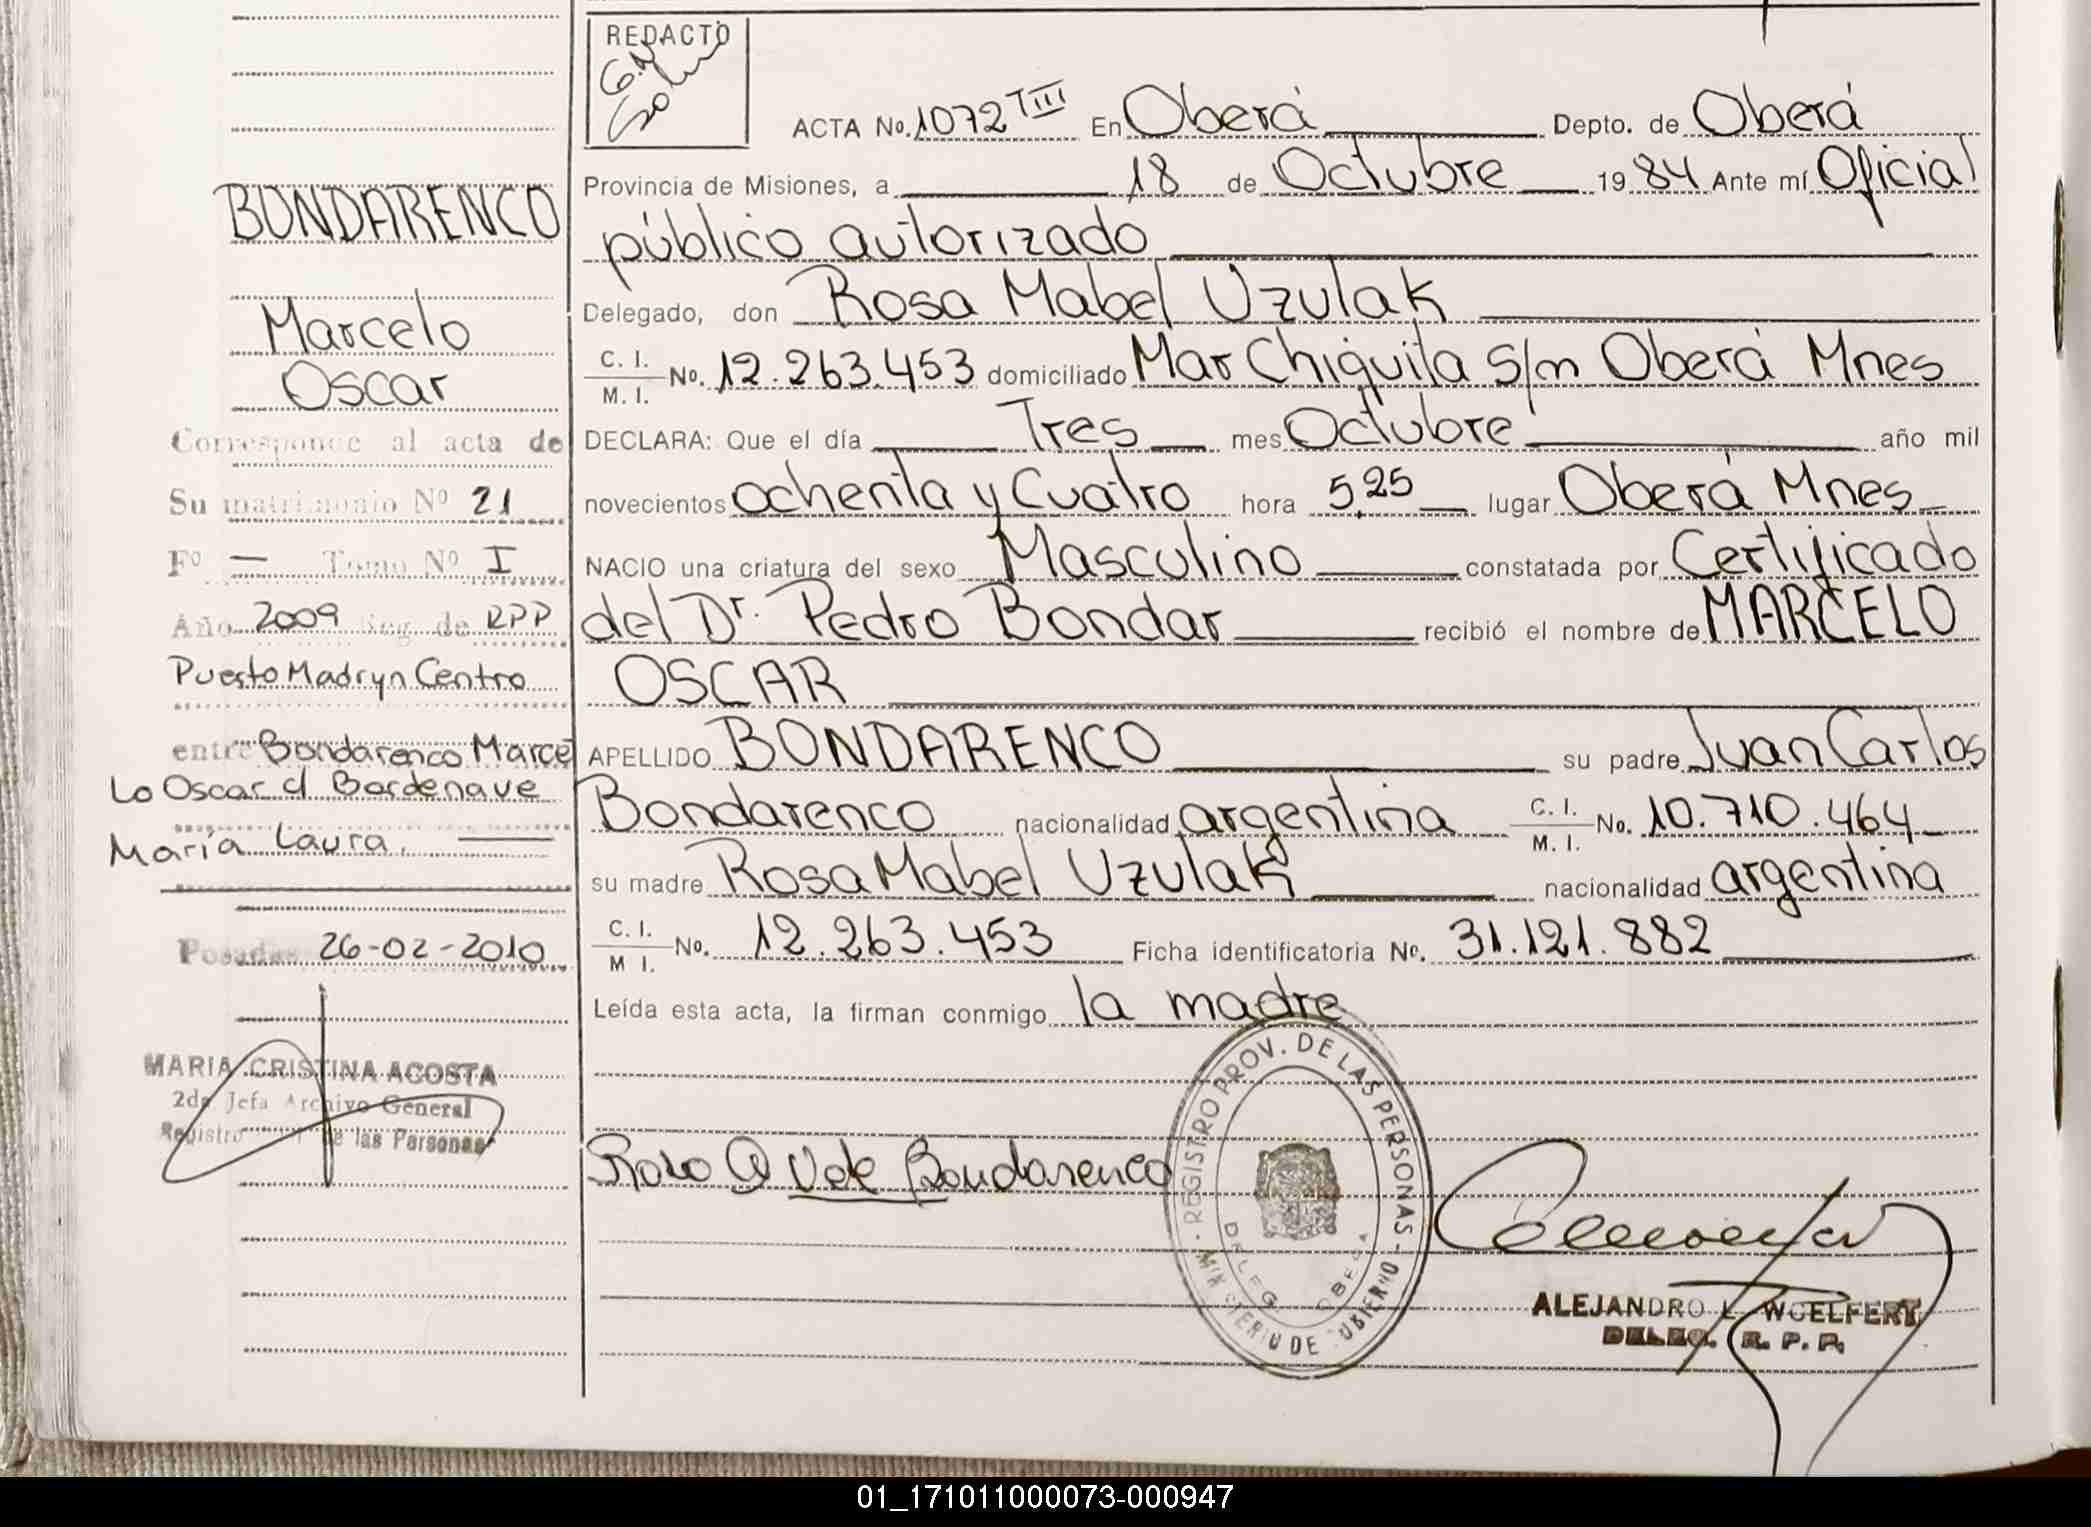 REDACTO
ACTA No. 1072 TIII En Oberá Depto. de Oberá
Provincia de Misiones, a 18 de Octubre 1984 Ante mí Oficial
público autorizado
Delegado, don Rosa Mabel Uzulak
C. I.
M. I. No. 12.263.453 domiciliado Mar Chiquita s/n Oberá Mnes
DECLARA: Que el día Tres mes Octubre año mil
novecientos ochenta y Cuatro hora 5,25 lugar Oberá Mnes
NACIO una criatura del sexo Masculino constatada por Certificado
del Dr. Pedro Bondar recibió el nombre de MARCELO
OSCAR
APELLIDO BONDARENCO su padre Juan Carlos
Bondarenco nacionalidad argentina C. I. M. I. No. 10.710.464
su madre Rosa Mabel Uzulak nacionalidad argentina
C. I.
M I. No. 12.263.453 Ficha identificatoria No. 31.121.882
Leída esta acta, la firman conmigo la madre
BONDARENCO
Marcelo
Oscar
Corresponde al acta de
Su matrimonio Nº 21
Fº — Tomo Nº I
Año 2009 Seg. de RPP
Puerto Madryn Centro
entre Bondarenco Marce
lo Oscar c/ Bordenave
María Laura.
Posadas 26-02-2010
MARIA CRISTINA ACOSTA
2da Jefa Archivo General
Registro de las Personas
de Bondarenco
REGISTRO PROV. DE LAS PERSONAS
MINISTERIO DE GOBIERNO
DELEG. OBERA
ALEJANDRO L. WOELFERT
DELEG. R. P. P.
01_171011000073-000947